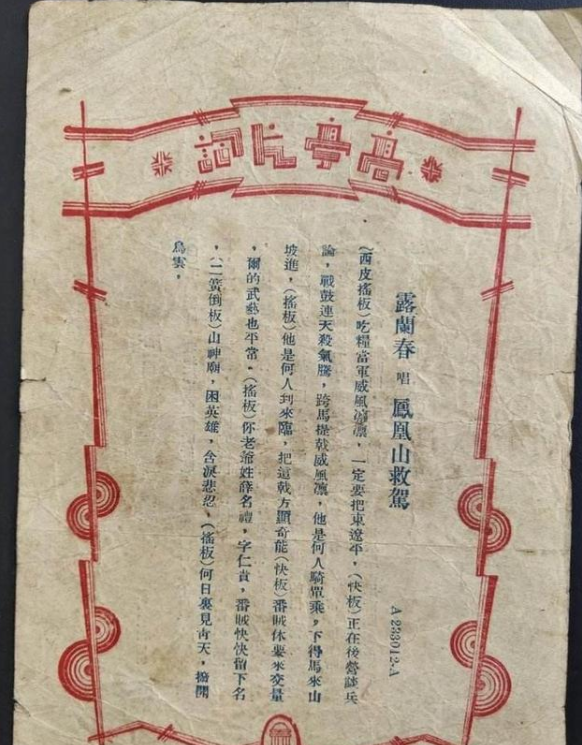 高亭片詞
露蘭春 唱 鳳凰山救駕
A 233012-A
(西皮搖板)吃糧當軍威風凛凛,一定要把東遼平,(快板)正在後營談兵
論,戰鼓連天殺氣騰,跨馬提戟威風凛,他是何人騎單乘,下得馬來山
坡進,(搖板)他是何人到來臨,把這戟方顯奇能(快板)番賊休要來交量
,爾的武藝也平常.(搖板)你老爺姓薛名禮,字仁貴,番賊快快留下名
,(二簧倒板)山神廟,困英雄,含淚悲忍,(搖板)何日裏見青天,撥開
烏雲,